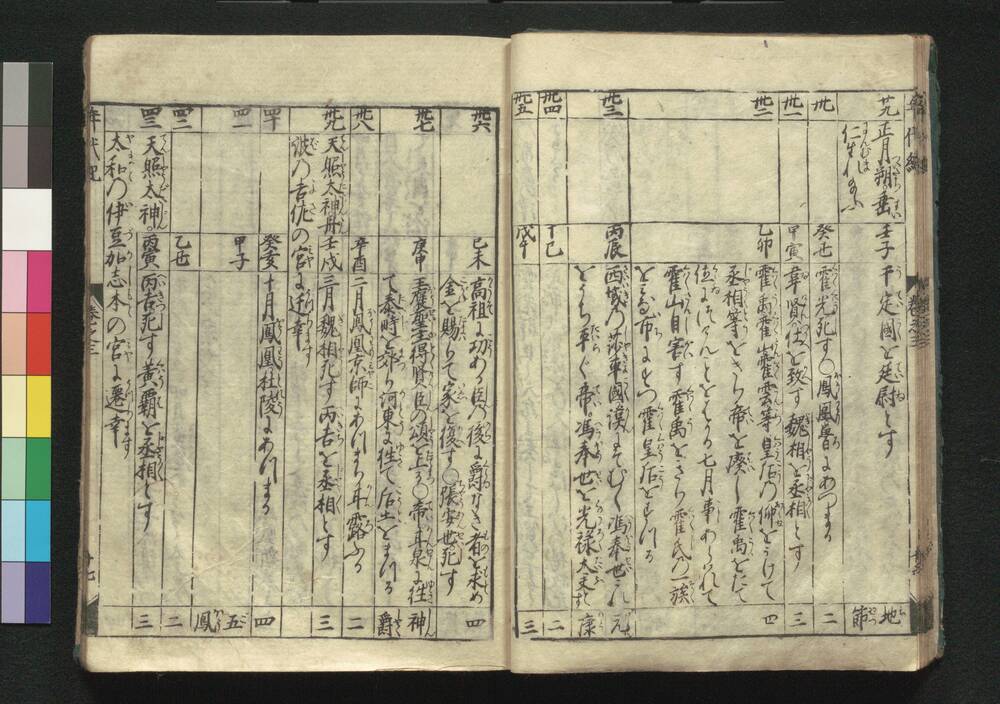 年代紀
廿九
正月朔垂
仁生れ給ふ
壬子
于定國を廷尉とす
地節
卅
癸丑
霍光死す〇鳳凰魯にあつまる
二
卅一
甲寅
韋賢仕を致す魏相を丞相とす
三
卅二
乙卯
霍禹霍山霍雲等皇后の仰をうけて
丞相等をきり帝を廃し霍禹をたて
位につけんとはかる七月事あらはれて
霍山自害す霍禹をきり霍氏の一族
四
卅三
丙辰
西域の莎車國漢にそむく馮奉世これ
をうち平らく帝馮奉世を光禄大夫とす
元康
卅四
丁巳
二
卅五
戊午
三
卅六
己未
高祖に功ある臣の後に爵なき者を求め
金を賜りて家を復す〇張安世死す
四
卅七
庚申
王襃聖主得賢臣の頌を上る〇帝甘泉に往
て泰時を祭り河東に往て后土をまつる
神爵
卅八
辛酉
二月鳳凰京師にあつまり甘露ふる
二
卅九
天照太神丹
波の吉佐の宮に迁幸
壬戌
三月魏相死す丙吉を丞相とす
三
四十
癸亥
十月鳳凰杜陵にあつまる
四
四一
甲子
五鳳
四二
乙丑
二
四三
天照太神
太和の伊豆加志本の宮に遷幸
丙寅
丙吉死す黄覇を丞相とす
三
年代紀